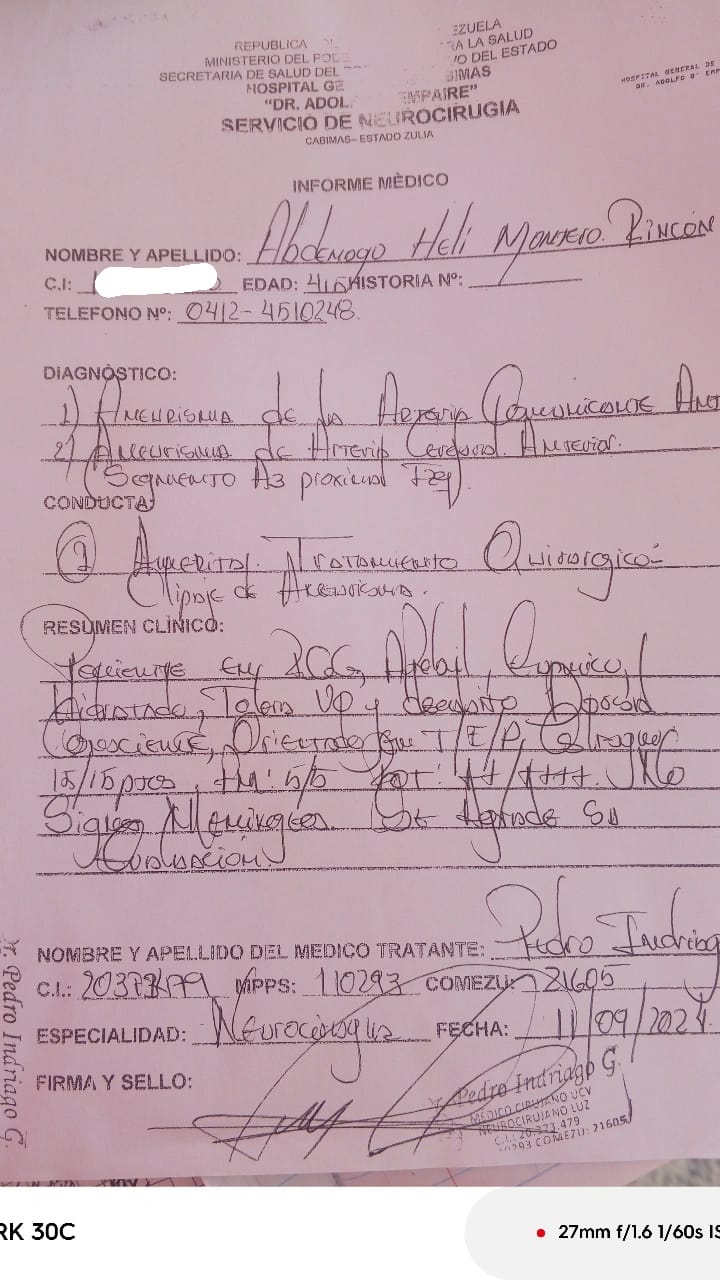 REPUBLICA EZUELA
MINISTERIO DEL POD RA LA SALUD
SECRETARIA DE SALUD DEL VO DEL ESTADO
HOSPITAL GE BIMAS
"DR. ADOL EMPAIRE"
SERVICIO DE NEUROCIRUGIA
CABIMAS- ESTADO ZULIA
HOSPITAL GENERAL DE
DR. ADOLFO D' EMP
INFORME MÈDICO
NOMBRE Y APELLIDO: Abdenago Heli Montero Rincón
C.I: EDAD: HISTORIA Nº:
TELEFONO Nº: 0412-4510248.
DIAGNÒSTICO:
1) Aneurisma de la Arteria Comunicante Ant
2) Aneurisma de Arteria Cerebral Anterior.
(Segmento A3 proximal Izq).
CONDUCTA:
Amerita Tratamiento Quirurgico
Clipaje de Aneurisma.
RESUMEN CLÌNICO:
Paciente en Afebril, Eupneico,
Hidratado, Tolera VO y decubito Dorsal
Consciente, Orientado en T/E/P, Glasgow
15/15 ptos, FM: 5/5 ROT: ++/++++. No
Signos Meningeos. Se Agrade Su
Evaluación
NOMBRE Y APELLIDO DEL MEDICO TRATANTE: Pedro Indriag
C.I.: MPPS: 110293 COMEZU: 21605
ESPECIALIDAD: Neurocirugia FECHA: 11/09/2024
FIRMA Y SELLO:
Pedro Indriago G.
MÉDICO CIRUJANO UCV
NEUROCIRUJANO LUZ
C.I.: 20.373.479
10293 COMEZU: 21605
r. Pedro Indriago G.
RK 30C
27mm f/1.6 1/60s IS